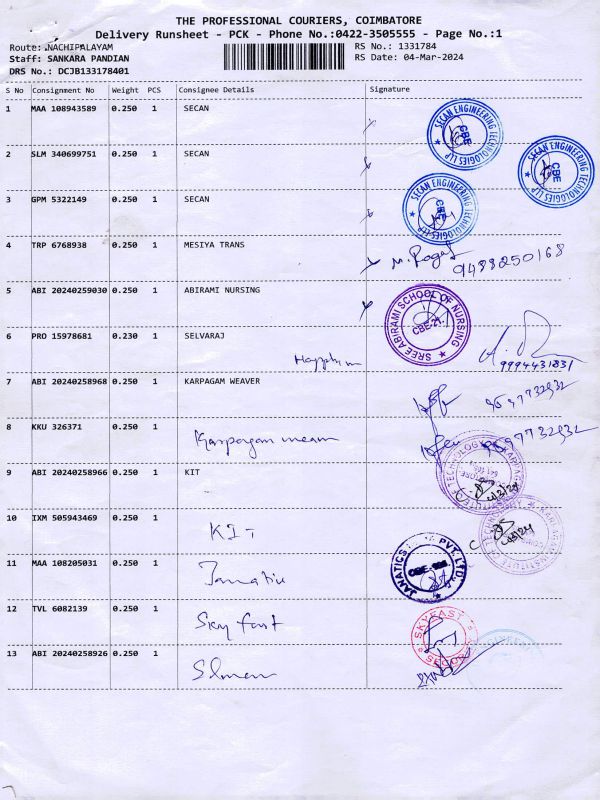 THE PROFESSIONAL COURIERS, COIMBATORE
Delivery Runsheet - PCK - Phone No.:0422-3505555 - Page No.:1
Route: NACHIPALAYAM
RS No.: 1331784
Staff: SANKARA PANDIAN
RS Date: 04-Mar-2024
DRS No.: DCJB133178401
S No Consignment No Weight PCS Consignee Details Signature
1 MAA 108943589 0.250 1 SECAN
SECAN ENGINEERING TECHNOLOGIES LLP CBE
2 SLM 340699751 0.250 1 SECAN
SECAN ENGINEERING TECHNOLOGIES LLP CBE
3 GPM 5322149 0.250 1 SECAN
SECAN ENGINEERING TECHNOLOGIES LLP CBE
4 TRP 6768938 0.250 1 MESIYA TRANS
9488250168
5 ABI 20240259030 0.250 1 ABIRAMI NURSING
SREE ABIRAMI SCHOOL OF NURSING CBE-21.
6 PRO 15978681 0.230 1 SELVARAJ
9994431831
7 ABI 20240258968 0.250 1 KARPAGAM WEAVER
8 KKU 326371 0.250 1
9597732932
9 ABI 20240258966 0.250 1 KIT
10 IXM 505943469 0.250 1 KIT
11 MAA 108205031 0.250 1
JANATICS PVT. LTD.,
12 TVL 6082139 0.250 1 Sky fast
SKYFAST
13 ABI 20240258926 0.250 1